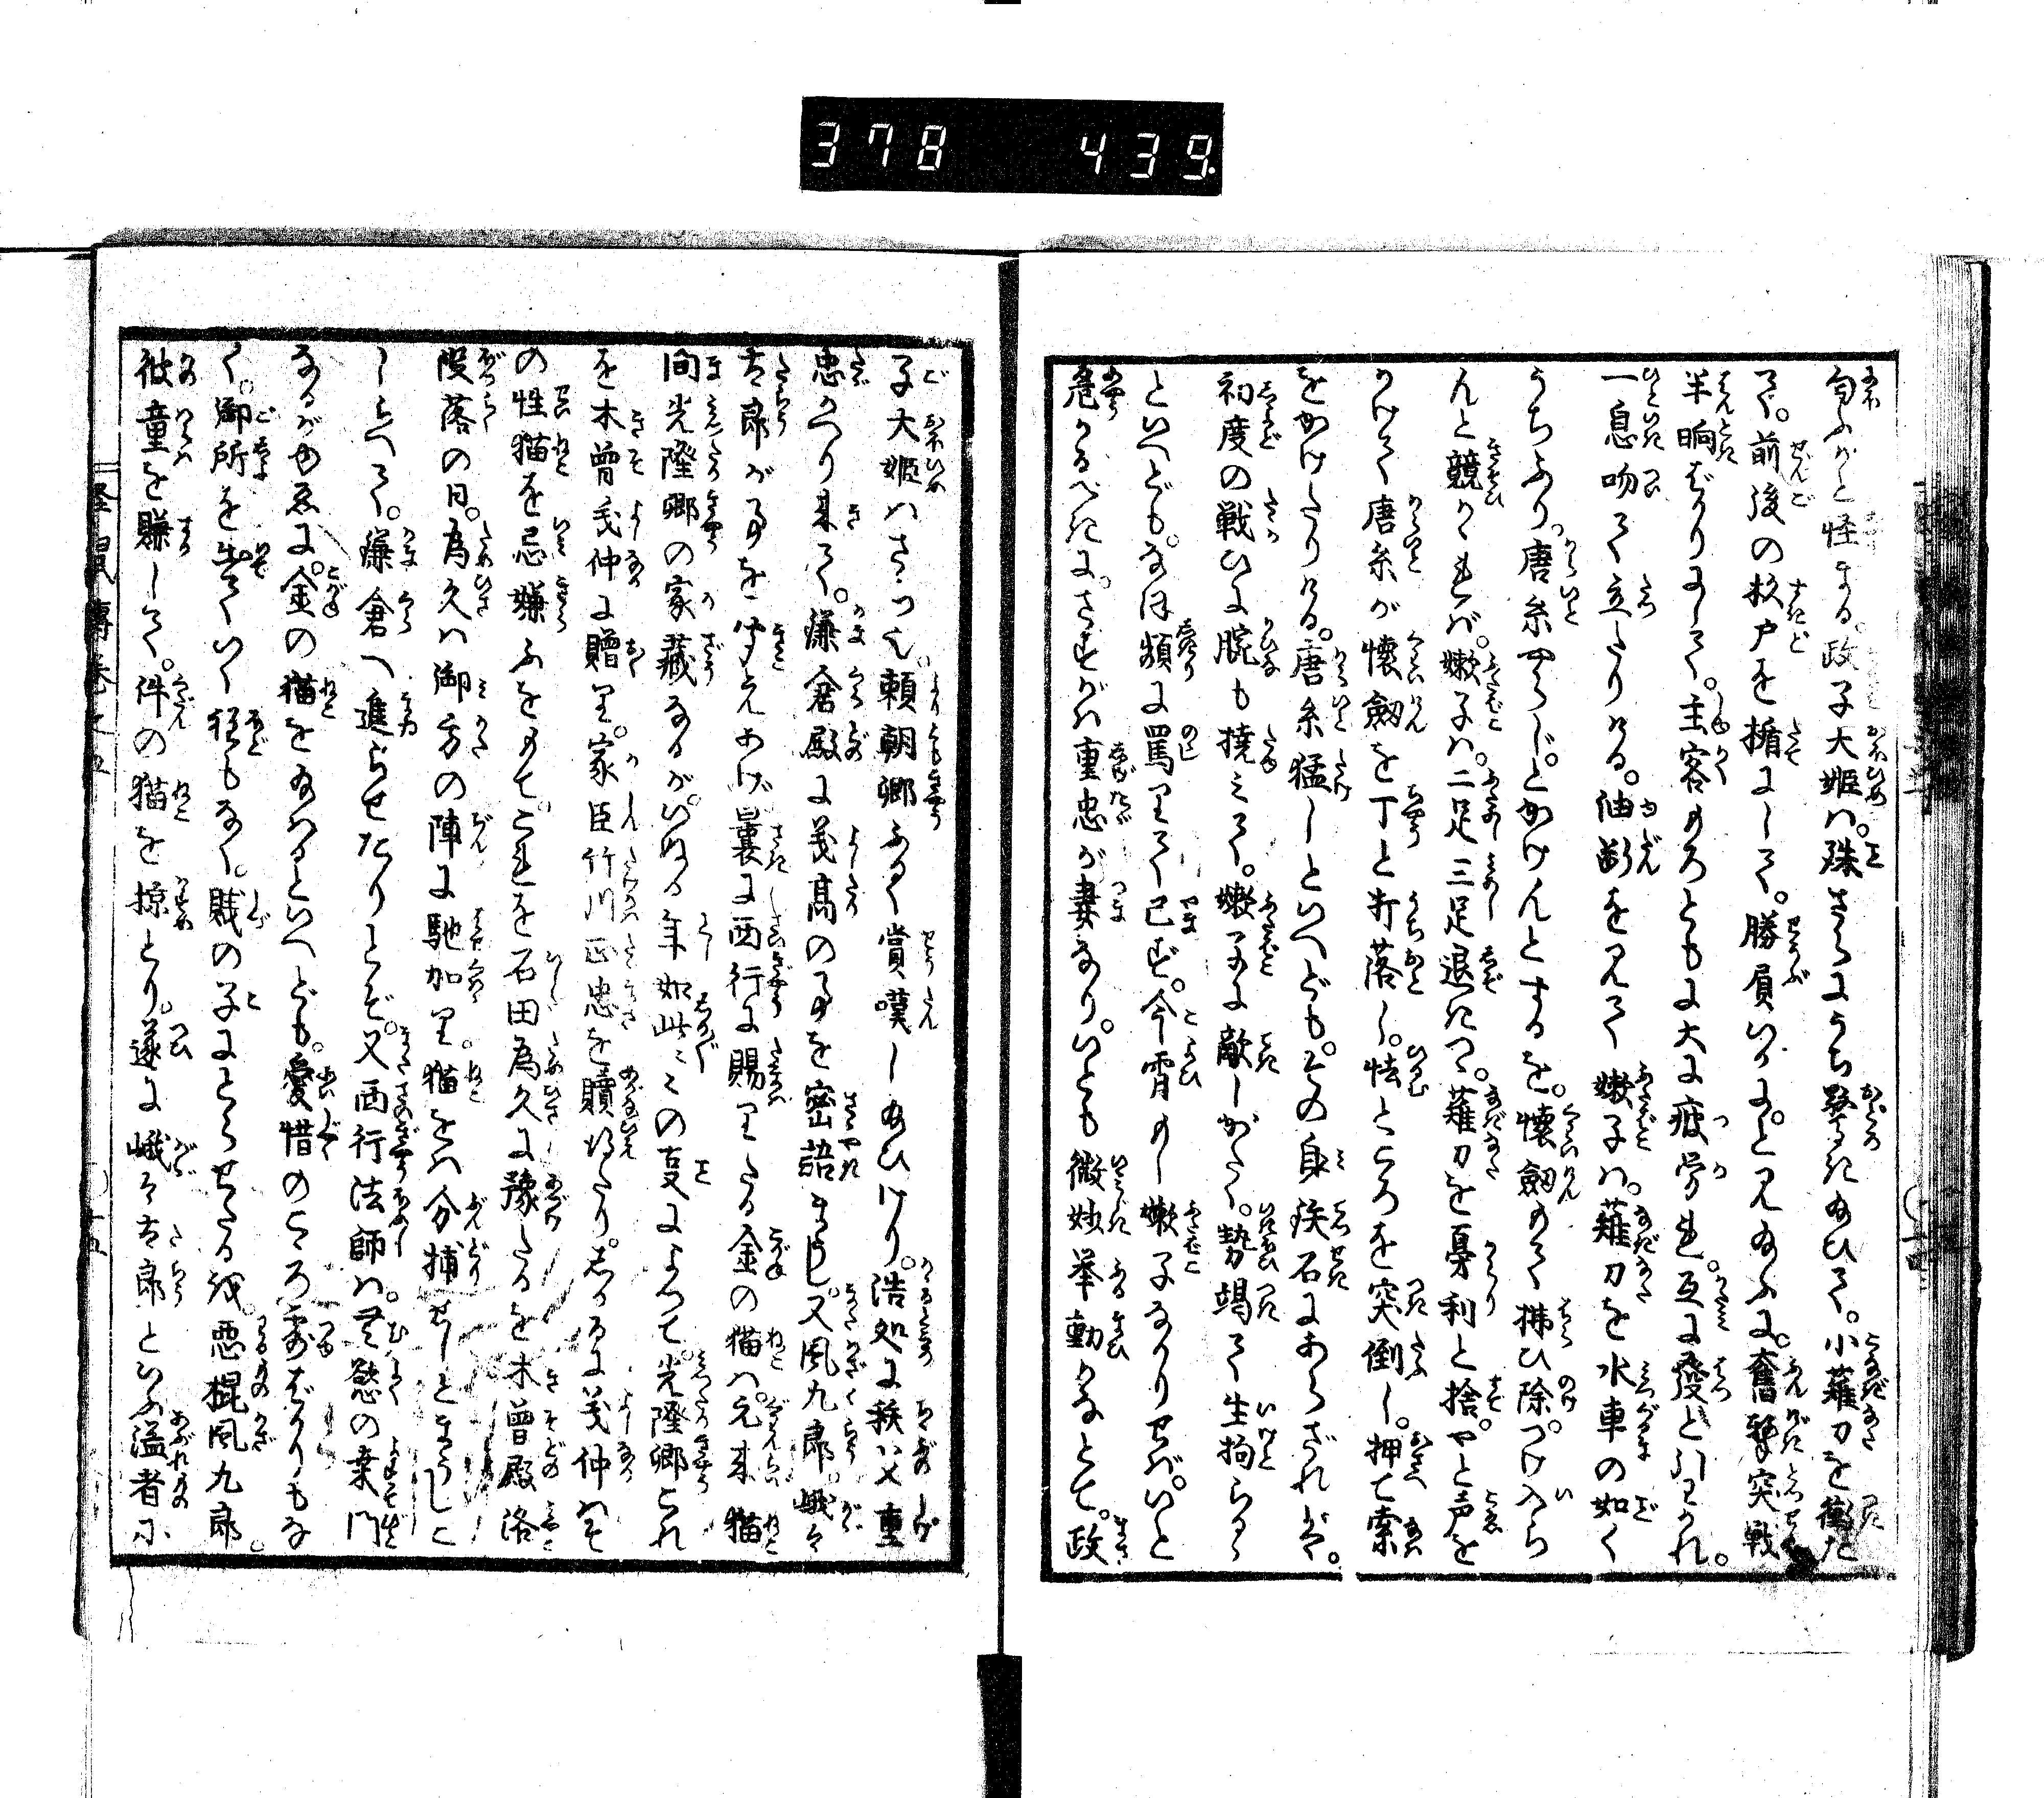 378 439
匂ふかと怪まる。政子大姫は。殊さらにうち驚き給ひて。小薙刀を衝た
て。前後の杉戸を楯にして。勝負いかにと見給ふに。奮撃突戦
半晌ばかりにして。主客のふたりともに大に疲労れ。互に發と引わかれ。
一息吻て立たりける。油断を見て嫩子は。薙刀を水車の如く
うちふり。唐糸やらじ。とかけんとするを。懐劔もて拂ひ除。つけ入ら
んと競かゝれば。嫩子は。二足三足退きつゝ。薙刀を戞利と捨。やと声を
かけて唐糸が懐劔を丁と打落し。怯ところを突倒し。押て索
をかけたりける。唐糸猛しといへども。その身鉄石にあらざれば。
初度の戦ひに腕も撓みて。嫩子に敵しがたく。勢竭て生拘らる
といへども。なほ頻に罵りて已ず。今宵もし嫩子なかりせば。いと
危かるべきに。さすがは重忠が妻なり。いとも微妙挙動かなとて。政
子大姫はさら也。頼朝卿ふかく賞嘆し給ひけり。浩処に秩父重
忠かへり来て。鎌倉殿に義髙の事を密語まうし。又風九郎。峨々
太郎が事を聞えあげ。曩に西行に賜りたる金の猫は。元来猫
間光隆卿の家蔵なるが。いぬる年如此々々の事によつて。光隆卿これ
を木曽義仲に贈り。家臣竹川正忠を贖給たり。しかるに義仲はそ
の性猫を忌嫌ふをもて。これを石田為久に豫たるを木曽殿洛
没落の日。為久は御方の陣に馳加り。猫をは分捕せしとまうしこ
しらへて。鎌倉へ進らせたりとぞ。又西行法師は。無慾の桒門
なるがゆゑに。金の猫を給はるといへども。愛惜のこゝろ露ばかりもな
く。御所を出ていく程もなく。賎の子にとらせたる我。悪棍風九郎。
彼童を賺して。件の猫を掠とり。遂に峨々太郎といふ溢者に